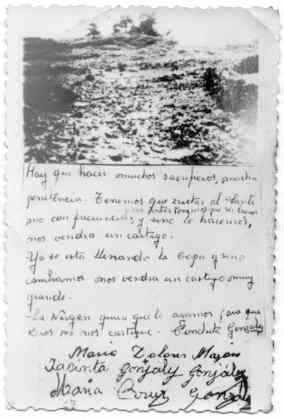 Hay que hacer muchos sacrificios, mucha
penitencia. Tenemos que visitar al Santí
simo con frecuencia; pero antes tenemos que ser buenos
y si no lo hacemos,
nos vendra un castigo.
Ya se esta llenando la Copa y si no
cambiamos nos vendra un castigo muy
grande.
La Virgen quiere que lo hagamos para que
Dios no nos castigue. Conchita Gonzalez
Maria Dolores Mazon
Jacinta Gonzalez Gonzalez
Maria Cruz Gonzalez